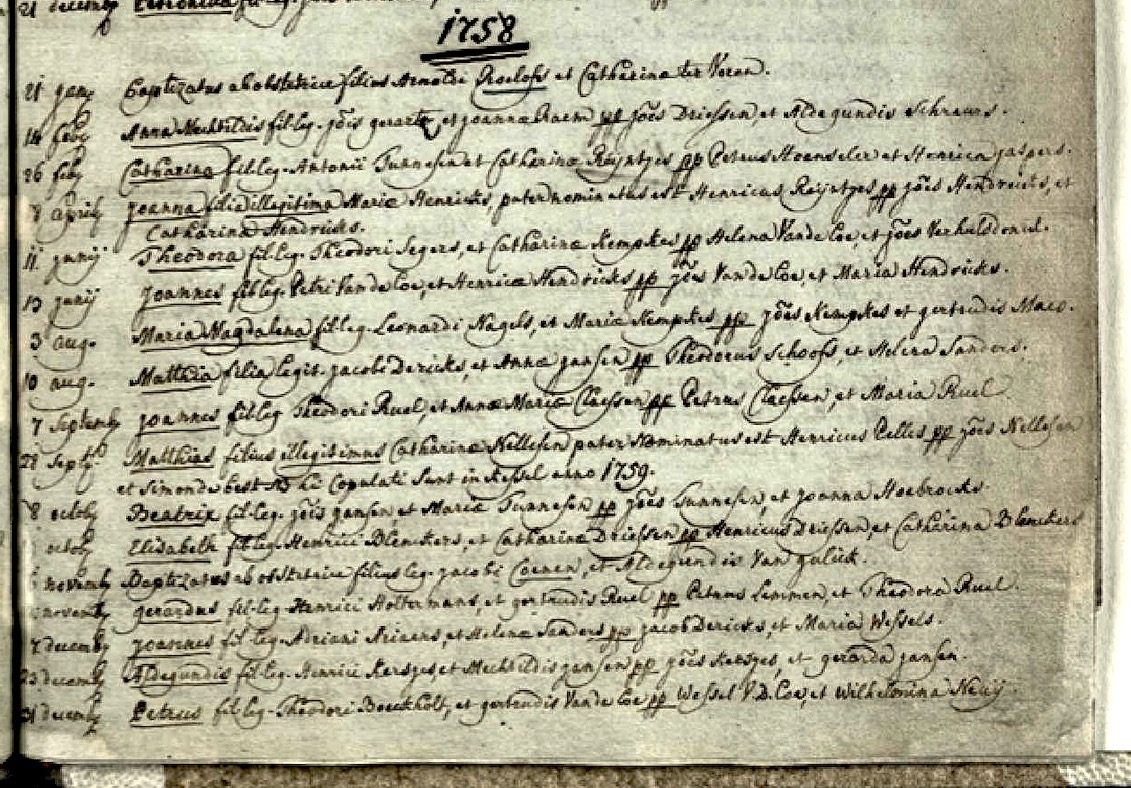 21 decemb Petronilla fil: leg:
1758
21 jan Baptizatus ab obstetrice filius Arnoldi Roelofs et Catharina ter Voren.
14 feb Anna Mechtildis fil: leg: jões gerarts, et joanna Kraem pp jões Driessen, et Aldegundis Schreurs.
26 feb Catharina fil: leg: Antonii Tunnesen et Catharinæ Reijntjes pp Petrus Hoenseler et Henrica jaspers.
8 april Joanna filia illegitima Mariæ Henricks, pater nominatus est Henricus Reijntjes pp jões Hendricks, et
Catharina Hendricks.
11 junij Theodora fil: leg: Theodori Segers, et Catharinæ Kempkes pp Helena Van de Loe, et jões Verhulsdonck.
13 junij Joannes fil: leg: Petri Van de Loe, et Henricæ Hendricks pp jões Van de Loe, et Maria Hendricks.
3 aug. Maria Magdalena fil: leg: Leonardi Nagels, et Mariæ Kempkes pp jões Kempkes et gertrudis Maes.
10 aug. Matthia filia legit: jacobi Dericks, et Annæ jansen pp Theodorus Schoofs, et Helena Sanders.
7 Septemb joannes fil: leg Theodori Ruel, et Annæ Mariæ Claessen pp Petrus Claessen, et Maria Ruel
28 Sept. Matthias filius illegitimus Catharinæ Nellesen pater nominatus est Henricus Pelles pp jões Nellesen
et Simonde best hi Copulati Sunt in Kessel anno 1759.
8 octob Beatrix fil: leg: jõis jansen, et Mariæ Tunnesen pp jões Tunnesen, et joanna Hoebrocks
octob Elisabeth fil: leg: Henrici Blenckers, et Catharinæ Driessen pp Henricus Driessen, et Catharina Blenckers
novemb Baptizatus ab obstetrice filius leg: jacobi Coenen, et Aldegundis Van gulick.
novemb gerardus fil: leg: Henrici Holtermans, et gertrudis Ruel pp Petrus Lemmen, et Theodora Ruel.
7 decemb joannes fil: leg: Adriani Ariaens, et Helenæ Sanders pp jacob Dericks, et Maria Wessels.
23 decemb Aldegundis fil: leg: Henrici Kersjes, et Mechtildis jansen pp jões Kersjes, et gerarda jansen.
31 decemb Petrus fil: leg: Theodori Boeckholt, et gertrudis Van de Loe pp Wessel V.D. Loe, et Wilhelmina Neuij.